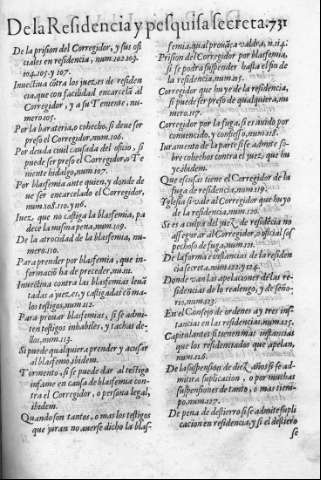 De la Residencia y pesquisa secreta. 731
De la prision del Corregidor, y sus ofi
ciales en residencia, num. 102. 103.
104. 105. y 107.
Inuectiua cõtra los juezes de residen
cia, que con facilidad encarcelã al
Corregidor, y a su Teniente, nu-
mero. 105.
Por la barateria, o cohecho, si deue ser
preso el Corregidor, num. 106.
Por deuda ciuil causada del oficio, si
puede ser preso el Corregidor, o Te
niente hidalgo, num. 107.
Por blasfemia ante quien, y donde de
ue ser encarcelado el Corregidor,
num. 108. 110. y 116.
Iuez, que no castiga la blasfemia, pa
dece la misma pena, num. 109.
De la atrocidad de la blasfemia, nu-
mero. 110.
Para prender por blasfemia, que in-
formaciõ ha de preceder, nu. 111.
Inuectiua contra las blasfemias leuã
tadas a juezes, y castigadas cõ ma-
los testigos, num. 112.
Para prouar blasfemias, si se admi-
ten testigos inhabiles, y tachas de-
llos, num. 113.
Si puede qualquiera prender y acusar
al blasfemo, ibidem.
Tormento, si se puede dar al testigo
infame en causa de blasfemia con-
tra el Corregidor, o persona legal,
ibidem.
Quando son tantos, o mas los testigos
que juran no auerse dicho la blas-
femia, qual prouãça valdra, n. 114.
Prision del Corregidor por blasfemia,
si se podra suspender hasta el fin de
la residencia, num. 115.
Corregidor que huye de la residencia,
si puede ser preso de qualquiera, nu-
mero. 117.
Corregidor por la fuga, si es auido por
conuencido, y confesso, num. 118.
Iuramento de la parte si se admite so-
bre cohechos contra el juez que hu
ye ibidem.
Que escusas tiene el Corregidor de la
fuga de residencia, num. 119.
Yglesia si vale al Corregidor que huyo
de la residencia, num. 120.
Si es a culpa del juez de residẽcia no
assegurar al Corregidor, o oficial sos
pechoso de fuga, num. 121.
De la forma e instancias de la residen
cia secreta, num. 123. y 124.
Donde van las apelaciones de las re-
sidencias de lo realengo, y de seño-
rio, num. 123.
En el Consejo de ordenes ay tres ins-
tancias en las residencias, num. 125.
Capitulantes si tienen mas instancias
que los residenciados que apelan,
num. 126.
De la suspension de diez años si se ad-
mitira suplicacion, o por muchas
suspensiones de tanto, o mas tiem-
po, num. 127.
De pena de destierro si se admite supli
cacion en residencia, y si el destierro
se